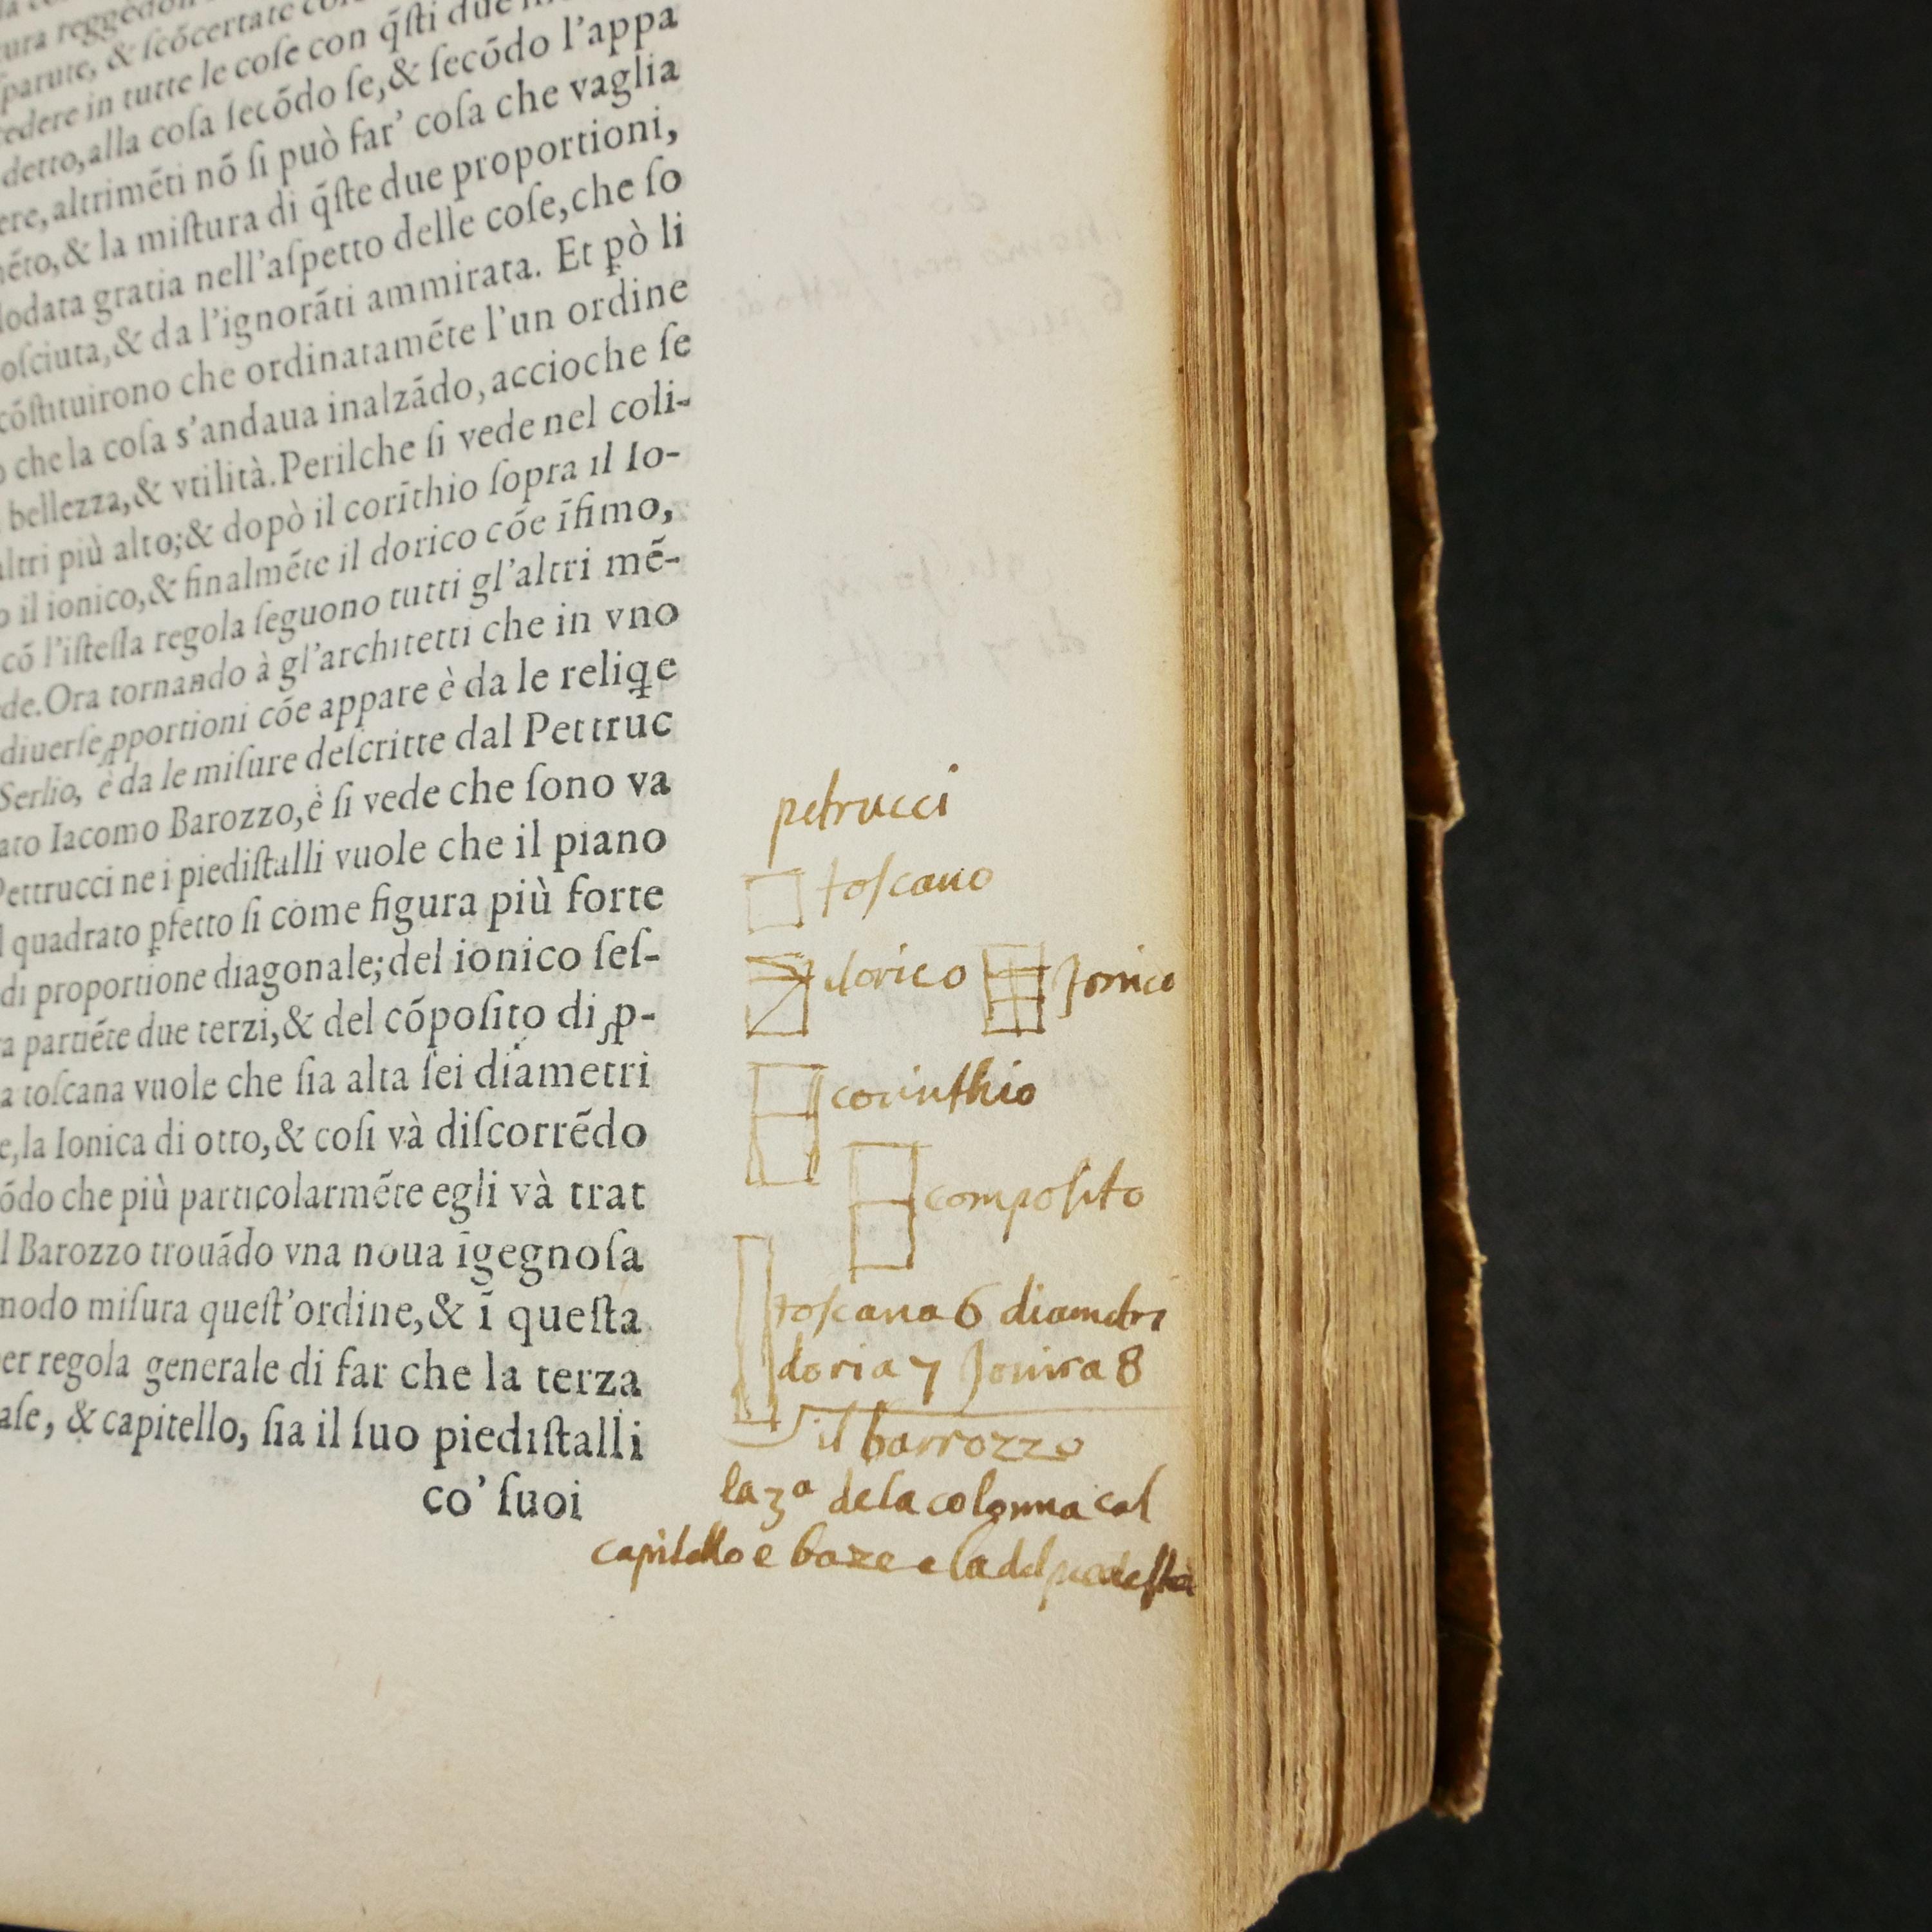 ura reggedon
parute, & ſcōcertate
cedere in tutte le coſe con q̃ſti due
detto, alla coſa ſecōdo ſe, & ſecōdo l'appa
ere, altrimẽti nō ſi può far' coſa che vaglia
mẽto, & la miſtura di q̃ſte due proportioni,
lodata gratia nell'aſpetto delle coſe, che ſo
oſciuta, & da l'ignorāti ammirata. Et pò li
cōſtituirono che ordinatamẽte l'un ordine
o che la coſa s'andaua inalzādo, accioche ſe
bellezza, & vtilità. Perilche ſi vede nel coli-
altri più alto; & dopò il corīthio ſopra il Io-
o il ionico, & finalmẽte il dorico cōe īfimo,
cō l'iſteſſa regola ſeguono tutti gl'altri mẽ-
de. Ora tornando à gl'architetti che in vno
diuerſe ꝓportioni cōe appare è da le reliq̃e
Serlio, è da le miſure deſcritte dal Pettruc
ato Iacomo Barozzo, è ſi vede che ſono va
Pettrucci ne i piediſtalli vuole che il piano
l quadrato ꝑfetto ſi come figura più forte
di proportione diagonale; del ionico ſeſ-
a partiẽte due terzi, & del cōpoſito di ꝓ-
a toſcana vuole che ſia alta ſei diametri
e, la Ionica di otto, & coſi và diſcorrẽdo
ōdo che più particolarmẽte egli và trat
l Barozzo trouādo vna noua īgegnoſa
modo miſura queſt'ordine, & ī queſta
er regola generale di far che la terza
aſe, & capitello, ſia il ſuo piediſtalli
co' ſuoi
petrucci
toſcano
dorico Jonico
corinthio
compoſito
toſcana 6 diametri
doria 7 Jonica 8
il barrozzo
la 3ª de la colonna col
capitello e baze e la del